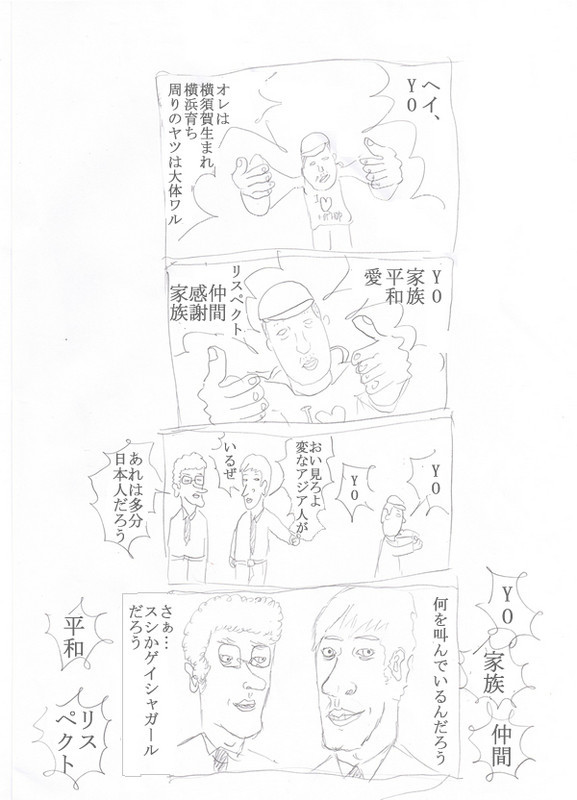 ヘイ、
YO
オレは
横須賀生まれ
横浜育ち
周りのヤツは大体ワル
I
YO
家族
平和
愛
リスペクト
仲間
感謝
家族
I
YO
YO
おい見ろよ
変なアジア人が
いるぜ
あれは多分
日本人だろう
YO
家族
仲間
何を叫んでいるんだろう
さぁ…
スシかゲイシャガール
だろう
平和
リス
ペクト